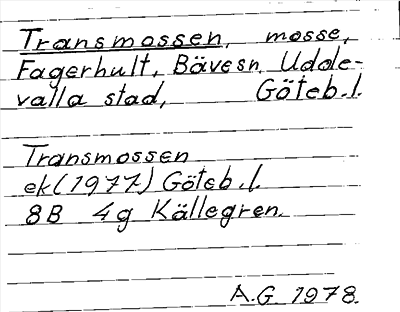 Transmossen, mosse,
Fagerhult, Bävesn. Udde-
valla stad, Göteb. l.
Transmossen
ek (1977) Göteb. l.
8B 4g Källegren.
A.G 1978.